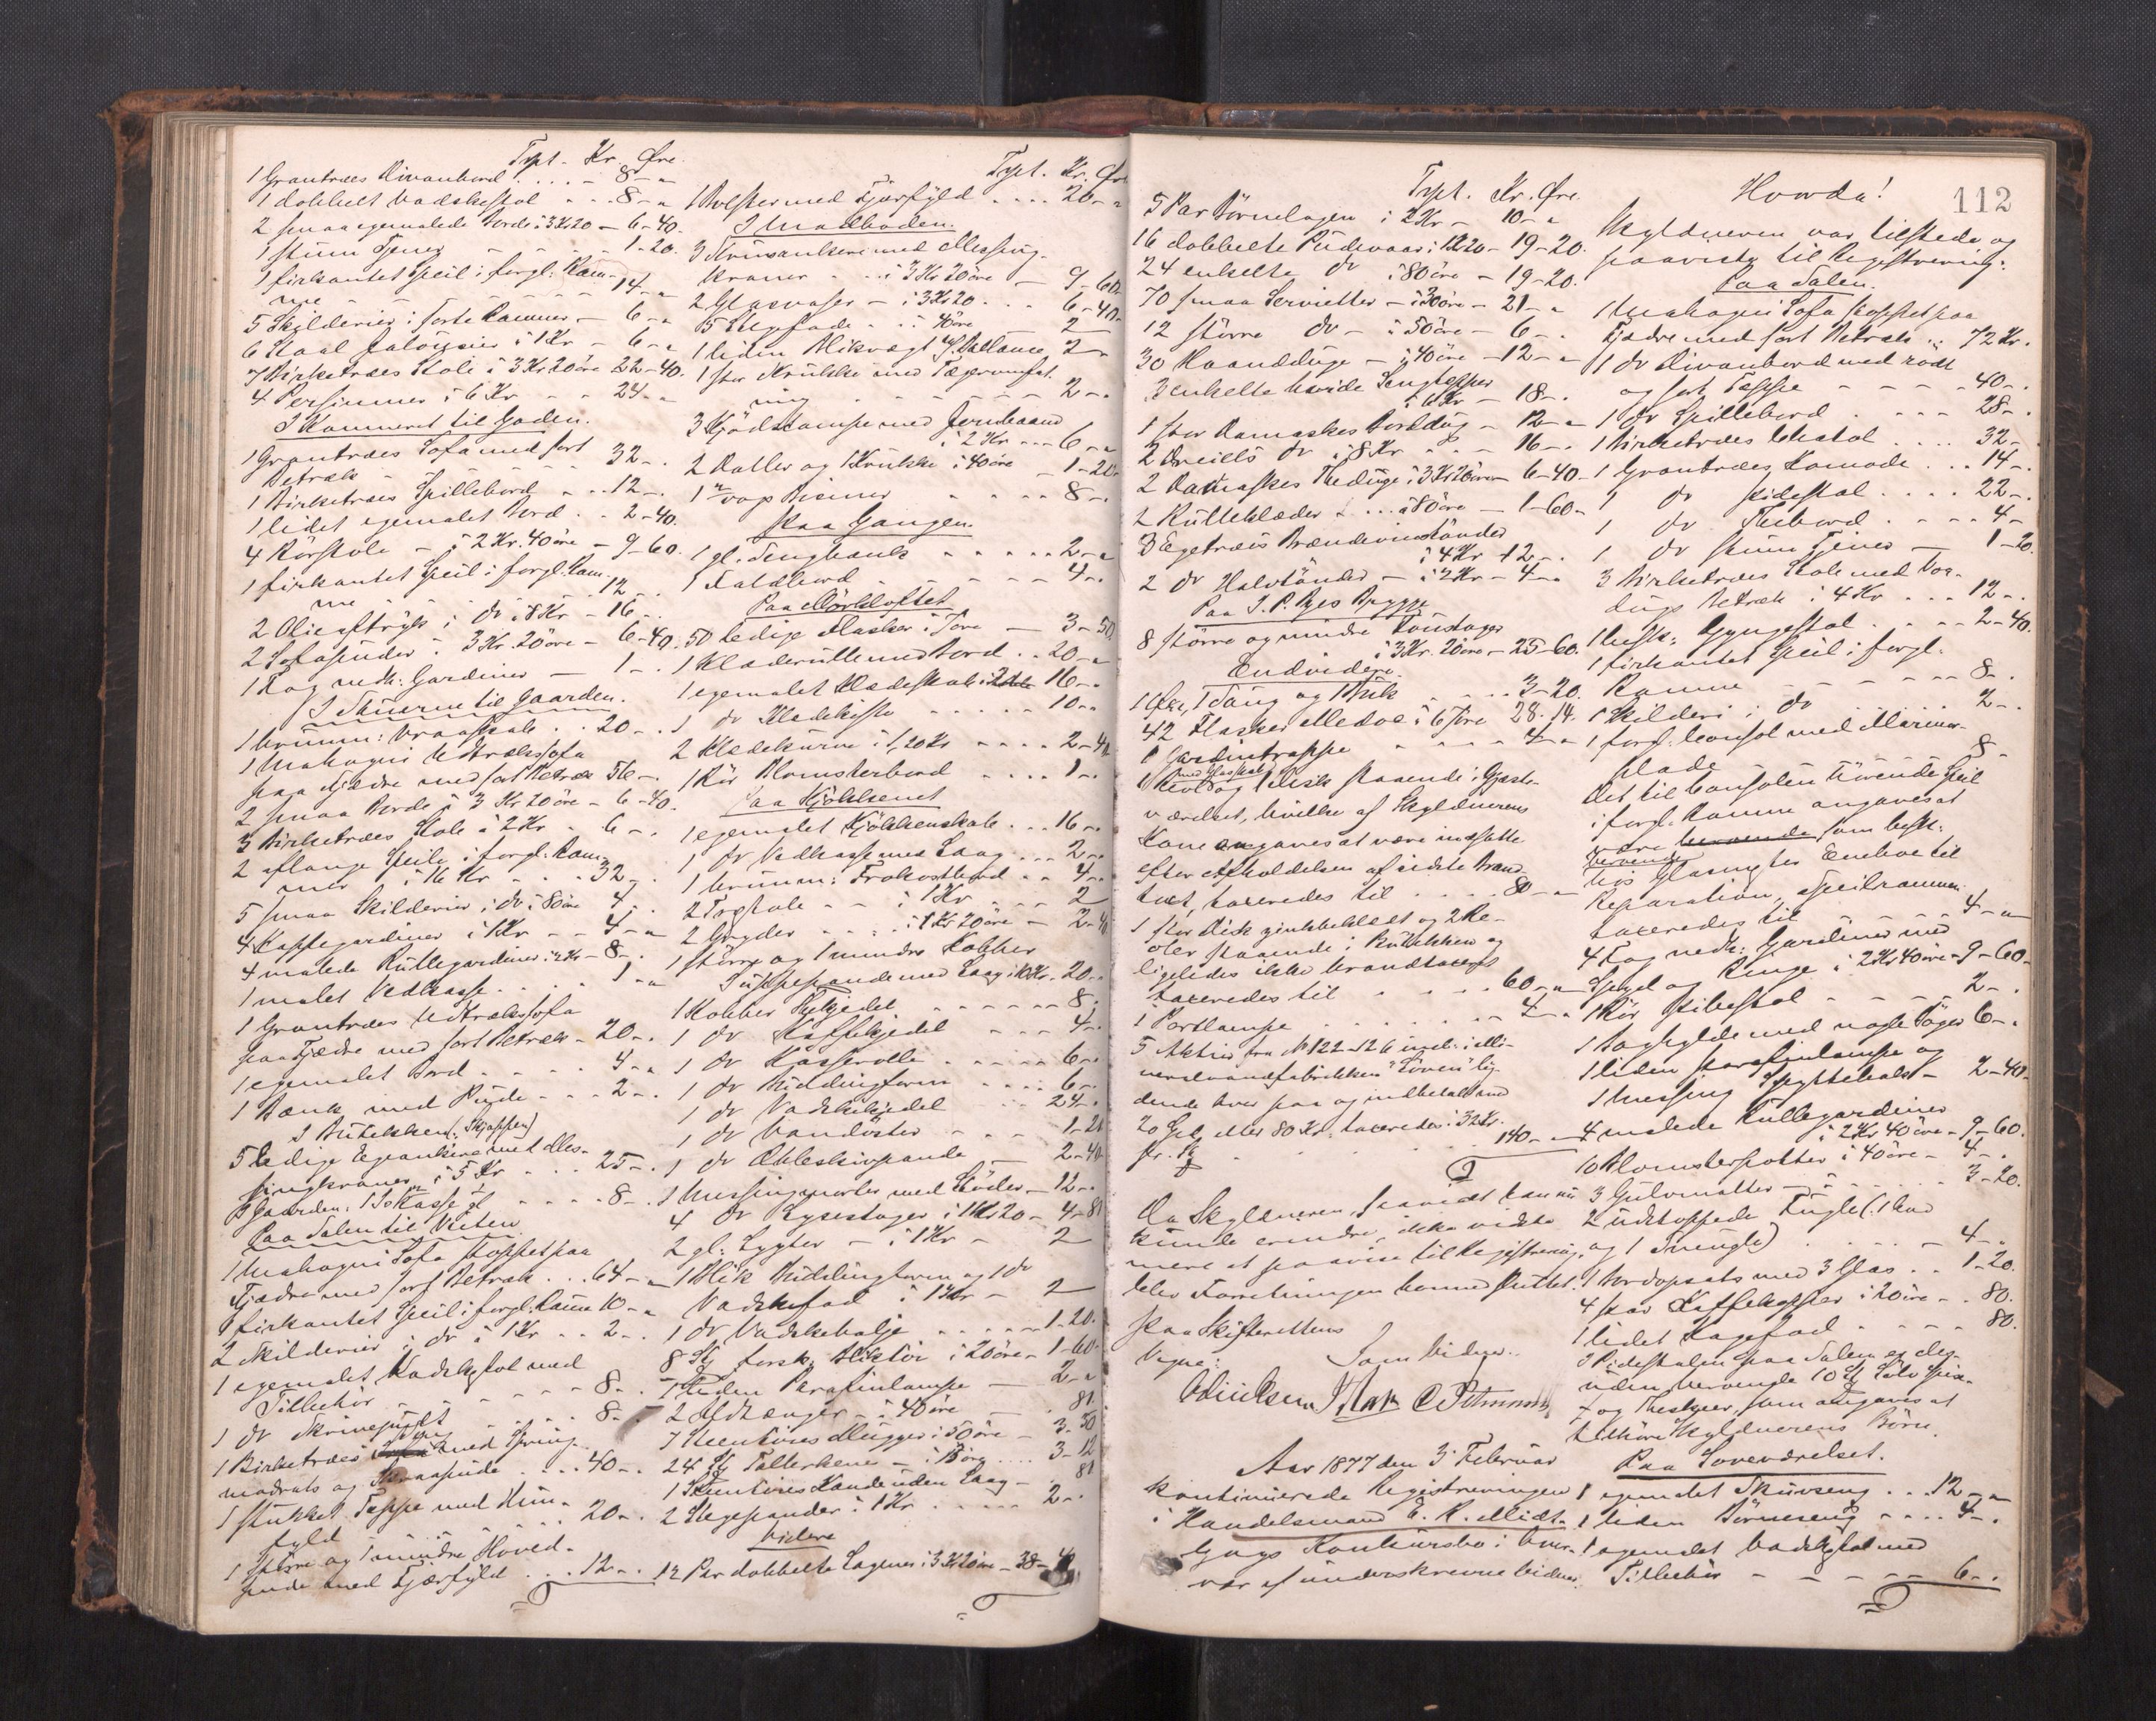 Txpt. Kr. Øre.
1 Grantræes Divanbord . . . . - 8 - "
1 dobbelt Vadskestol - - - 8 - "
2 smaa egemalede Borde i 3 Kr 20 - 6 - 40.
1 stum Tjener - - - - 1 - 20.
1 firkantet Speil i forgl: Ram-
me - - - - - - 14 - "
5 Skilderier i sorte Rammer - 6 - "
6 Staal Jalousier à 1 Kr - 6 - "
7 Birketræes Stole à 3 Kr 20 øre 22 - 40.
4 Persienner i 6 Kr - - 24 - "
I Kammeret til Gaden.
1 Grantræes Sofa med sort
Betræk - 32 - .
1 Birketræes Spillebord - . . 12 - .
1 lidet egemalet Bord . . 2 - 40.
4 Rørstole - à 2 Kr. 40 øre - 9 - 60.
1 firkantet Speil i forgl. Ram-
me - - - - - - 12 - .
2 Olietryk i do à 8 Kr - 16 - .
2 Sofapuder - 3 Kr. 20 øre - 6 - 40.
1 Fag nedh: Gardiner - 1 - .
I Stuerne til Gaarden.
1 brunm: Vraaskab . . 20 - .
1 Mahogni Udtrækssofa
paa Fjædre med sort Betræk 56 - .
2 smaa Borde à 3 Kr 20 øre - 6 - 40.
3 Birketræes Stole à 2 Kr - 6 - .
2 aflange Speile i forgl: Ram-
mer à 16 Kr - - 32 - .
5 smaa Skilderier i do à 80 øre 4 - .
4 Kappegardiner à 1 Kr - - 4 - "
4 malede Rullegardiner i 2 Kr - 8 - .
1 malet Vedkasse . . . . 1 - "
1 Grantræes Udtrækssofa
paa Fjædre med sort Betræk - 20 - .
1 egemalet Bord . - - - - 4 - "
1 Bænk med Pude - - - 2 - .
I Butikken (: Skjappen)
5 ledige Egeankere med Mes-
singkraner à 5 Kr . . . 25 - .
I Gaarden: 1 Kasse . . . . 8 - .
Paa Salen til Vesten
1 Mahogni Sofa stoppet paa
Fjædre med sort Betræk . . . 64 - "
1 firkantet Speil i forgl. Ramme 10 - "
2 Skilderier i do à 1 Kr . . 2 - .
1 egemalet Vadskestol med
Tilbehør - - - - 8 - .
1 do Skrivepult - - . . . 8 - .
1 Birketræes Seng med Spring-
madrats og Skraapude . . . . 40 - .
1 stukket Tæppe med Duun-
fyld - - - . . . 20 - .
1 større og 1 mindre Hoved-
pude med Fjærfyld . . . 12 - .
Txpt. Kr. Øre
1 Bolster med Fjærfyld . . . . 20 - "
I Madboden.
3 Krusankere med Messing-
kraner - . . à 3 Kr 20 øre - 9 - 60.
2 Glasvaser - à 3 Kr 20 . . . 6 - 40.
5 Stegefade . . à 40 øre 2 -
1 liden Blikvægt m/ Ballance 2 -
1 stor Krukke med Tægeromflet-
ning - - - - - - - 2 - .
3 Kjødstampe med Jernbaand
à 2 Kr - - - 6 - "
2 Daller og 1 Krukke à 40 øre - 1 - 20.
1 Bismer . . . . . 8 - .
Paa Gangen.
1 gl. Sengbænk - - - - - 2 - "
1 Faldbord - - - - - - 4 - .
Paa Mørkloftet
50 ledige Flasker i 7 øre - 3 - 50.
1 Klæderulle med Bord . . 20 - "
1 egemalet Klædeskab 16 - .
1 do Klædekiste . . . . . 10 - "
2 Klædekurve à 1,20 Kr - - - - 2 - 40.
1 Rør Blomsterbord . . . . 1 - .
Paa Kjøkkenet
1 egemalet Kjøkkenskab . . . 16 - .
1 do Vedkasse med Laag . . . 2 - .
1 brunm: Frokostbord . . 4 - .
2 Træstole - - à 1 Kr - - 2
2 Gryder - - . . à 1 Kr 20 øre - 2 - 40
1 større og 1 mindre Kobber
Suppepande med Laag i 10 Kr. 20 - .
1 Kobber Thekjedel - - - - - - 8 - .
1 do Kaffekjedel - - - - 4 - .
1 do Kasserolle . . . . . 6 - .
1 do Buddingform - - - . 6 - .
1 do Vadskekjedel - - . 24 - .
1 do Vandøster . - - - 1 - 20
1 do Æbleskivpande - - 2 - 40
1 Messingmorter med Støder - 12 - .
4 do Lysestager i 1 Kr 20 - 4 - 80
2 gl. Lygter - à 1 Kr - 2
1 Blik Buddingform og 1 do
Vadskefad à 1 Kr - 2
1 do Vadskebalje - - - - - 1 - 20.
8 Stk forsk. Bliktøi i 20 øre - 1 - 60.
1 liden Parafinlampe - 2 - "
2 Ildtænger - à 40 øre - . 80
7 Steentøies Mugger i 50 øre - 3 - 50
24 Stk Tallerkener - i 13 øre . . . . 3 - 12
1 Steentøies Kande uden Laag - . 80
2 Stegepander i 1 Kr . . . . . 2 - .
Videre
12 Par dobbelte Lagener i 3 Kr 20 øre - 38 - 40
Txpt. Kr. Øre.
5 Par Børnelagen i 2 Kr - 10 - "
16 dobbelte Pudevaar i 1 Kr 20 - 19 - 20.
24 enkelte do i 80 øre - 19 - 20.
70 smaa Servietter - à 30 øre - 21 - "
12 større do - à 50 øre - 6 - .
30 Haandduge - à 40 øre - 12 - "
3 enkelte hvide Sengtepper
à 6 Kr - 18 - .
1 stor Damaskes Borddug - 12 - "
2 Dreiels do à 8 Kr . . - 16 - .
2 Damaskes Theduge i 3 Kr 20 øre - 6 - 40 -
2 Rulleklæder - . . . à 80 øre - 1 - 60 -
3 Egetræes Brændevinstønder
à 4 Kr - 12 - .
2 do Halvtønder - à 2 Kr - 4 - "
Paa J. P. Byes Brygge
8 større og mindre Tønstager
à 3 Kr. 20 øre - 25 - 60.
Endvidere
1 Øxe, 1 Sang og 1 Brik . . . 3 - 20.
42 Flasker Medoc i 67 øre 28. 14.
1 Gardintrappe - - - - - 4 - "
1 Reol med Glasskab og 1 Disk staaende i Gjæste-
værelset, hvilke af Skyldnerens
Kone angaves at være indsatte
efter Afholdelsen af sidste Brand-
taxt, taxeredes til - - - - 80 - "
1 stor Disk zinkbeklædt og 2 Re-
oler staaende i Butikken og
ligeledes ikke brandtaxert
taxeredes til - - . . 60 - "
1 Portlampe . . . . . . . - - 4 - "
5 Aktier fra No 122-126 incl. i Mi-
neralvandfabrikken "Løven" ly-
dende hver paa og indbetalt med
20 Spd, eller 80 Kr. taxeredes i 32 Kr.
pr. St . . . . . . . . 140 - "
Da Skyldneren, saavidt han nu
kunde erindre, ikke vidste
mere at paavise til Registrering,
blev Forretningen hermed sluttet.
Paa Skifterettens
Vegne: Som Vidner:
Aar 1877 den 3 Februar
kontinuerede Registreringen
i Handelsmand E. K. Midt-
bgs Konkursbo i Over-
vær af underskrevne Vidner.
112
Howda!
Skyldneren var tilstede og
paaviste til Registrering:
Paa Salen.
1 Mahogni Sofa stoppet paa
Fjædre med sort Betræk . . 72 Kr.
1 do Divanbord med rødt
og sort Tæppe - - - - - 40 - .
1 do Spillebord . . - - - 28 - .
1 Birketræes Chatol . . . . 32 - .
1 Grantræes Komode . . . 14 - .
1 do Pidestal . . . . . 22 - .
1 do Thebord - - - - 4 -
1 do stum Tjener - 1 - 20.
3 Birketræes Stole med Vox-
dugs Betræk i 4 Kr - - - 12 - .
1 besk: Gyngestol - - - - 2 - 40.
1 firkantet Speil i forgl.
Ramme - - - - - - 8 - .
1 Skilderi i do . . . . . 2 - .
1 forgl. Consol med Marmor-
plade 8 -
Det til Consolen hørende Speil
i forgl. Ramme angaves at
være beroende som besk:
hos Glasmester Enehoe til
Reparation, Speilrammen
taxeredes til - - - - 4 - "
4 Fag nedh: Gardiner med
Spyd og Ringe à 2 Kr 40 øre - 9 - 60 -
1 Rør Pibestol - - - - 2 - .
1 Boghylde med nogle Bøger 6 - .
1 liden Parafinlampe og
1 Messing Spyttebak - 2 - 40.
4 malede Rullegardiner
à 2 Kr 40 øre - 9 - 60.
10 Blomsterpotter i 40 øre - 4 - .
3 Gulvmatter - - - . . . 3 - 20.
2 udstoppede Fugle (: 1 Uhu
og 1 Snaugle) - - - 4 - .
1 Bordopsats med 3 Glas . . 1 - 20.
4 Par Kaffekopper i 20 øre - . 80.
1 lidet Kagefad . - - - - 80.
I Pidestalen paa Salen er des-
uden beroende 10 Stk Sølv Spise-
og Theskeer, som angaves at
tilhøre Skyldnerens Børn.
Paa Soveværelset.
1 egemalet Skuvseng . . . 12 - "
1 liden Børneseng - - . . . 4 - .
1 egemalet Vadskestol med
Tilbehør - - - - - - 6 - .